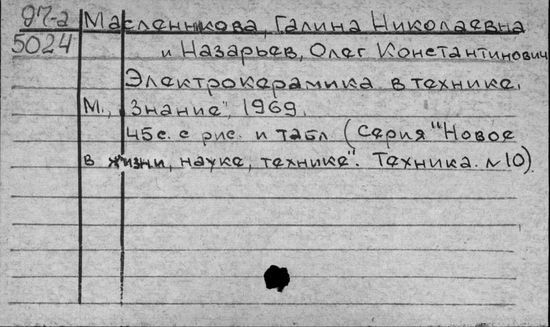 Д7-2 Масленникова, Галина Николаевна
5024 и Назарьев, Олег Константинович
Электрокерамика в технике.
М., "Знание", 1969.
45с. с рис. и табл (Серия "Новое
в жизни, науке, технике". Техника. №10).